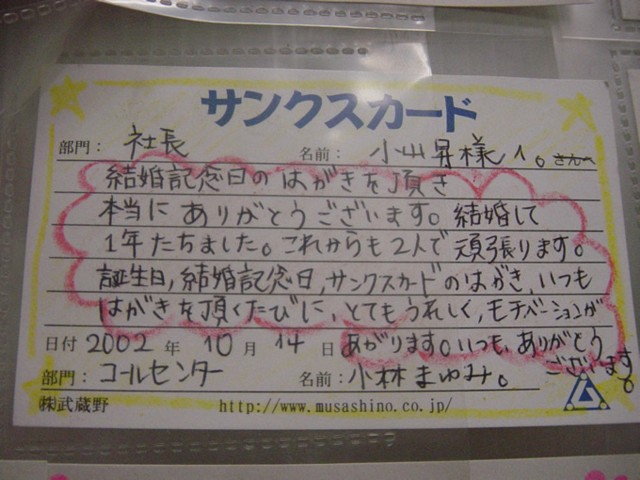 サンクスカード
部門: 社長 名前: 小山昇様へ。さんへ
結婚記念日のはがきを頂き
本当にありがとうございます。結婚して
1年たちました。これからも2人で頑張ります。
誕生日,結婚記念日,サンクスカードのはがき,いつも
はがきを頂くたびに,とてもうれしく,モチベーションが
日付 2002 年 10 月 14 日 あがります。いつも,ありがとう
ございます。
部門: コールセンター 名前: 小林まゆみ。
㈱武蔵野 http://www.musashino.co.jp/